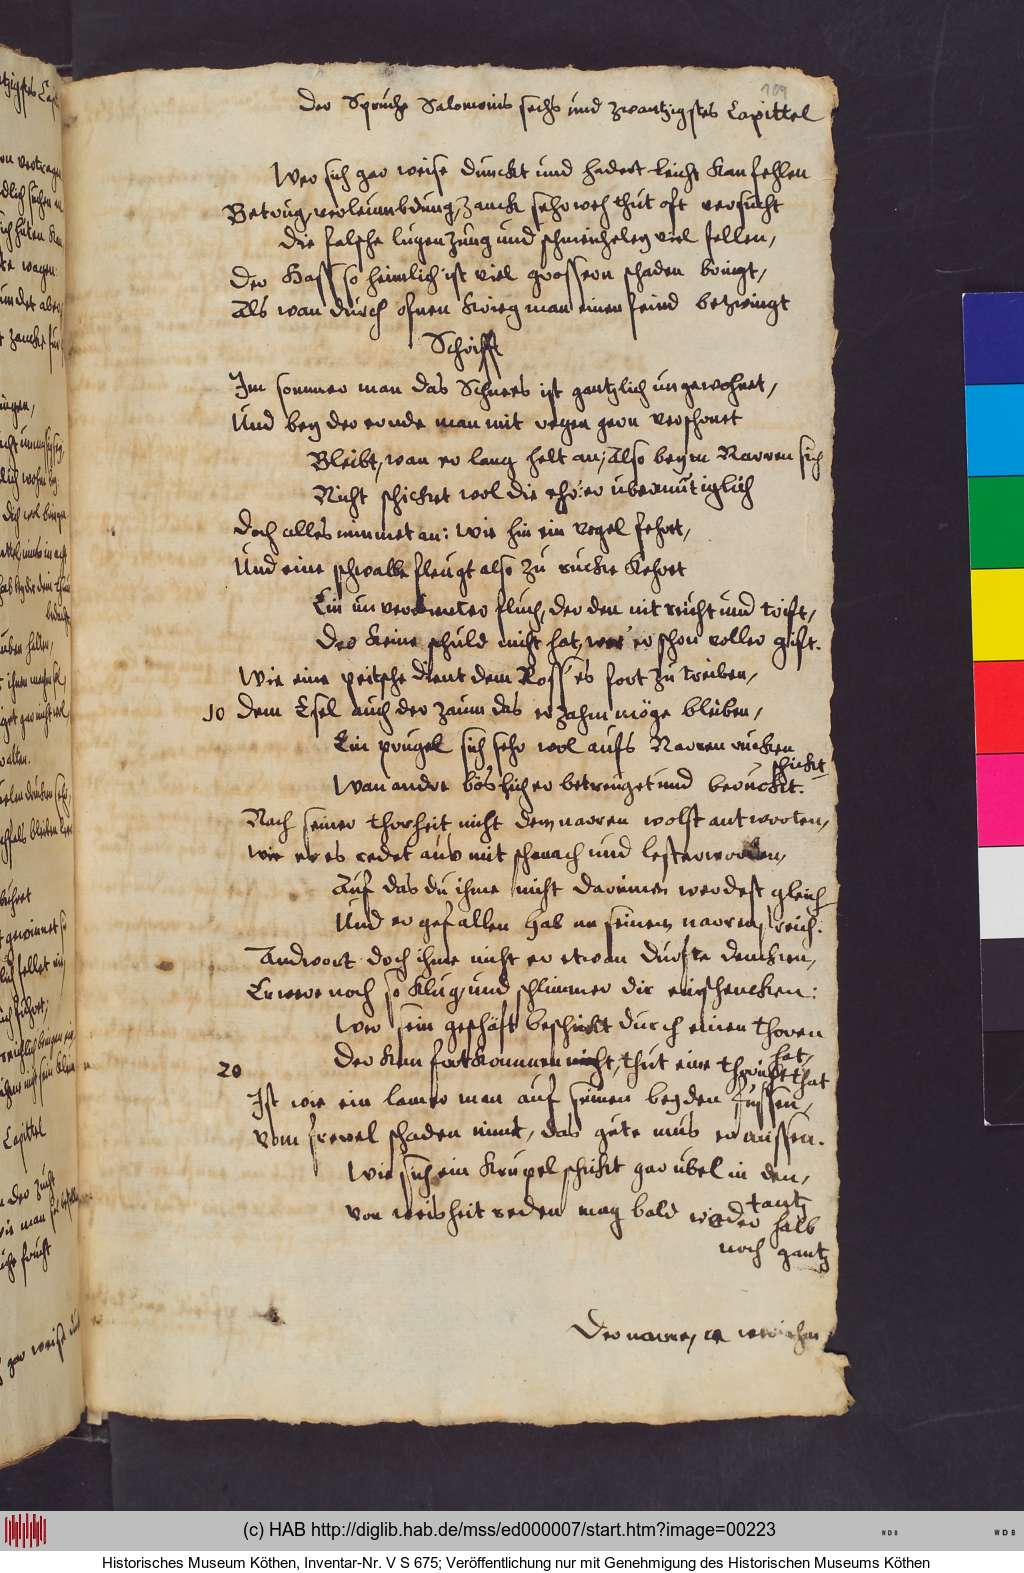 109
Der Spruche Salomonis sechs und zwantzigstes Capittel
Wer sich gar weise dunckt und hadert leicht kan fehlen
Betrug, verleumbdung, zanck sehr weh thut oft versucht
Die falsche lugen zung und schmeicheley viel fellen,
Der Hass so heimlich ist viel grossern schaden bringt,
Als wan durch ofnen krieg man einen feind bezwingt
Schrifft
Im sommer man das Schnees ist gantzlich ungewohnet,
Und bey der ernde man mit regen gern verschonet
Bleibt, wan er lang helt an; Also beym Narren sich
Nicht schicket wol die ehr: er ubermutiglich
Doch alles nimmet an: wie hin ein vogel fehret,
Und eine schwalbe fleugt also zu rucke kehret
Ein unverdienter fluch, der den nit sucht und trift,
Der keine schuld nicht hat, wer er schon voller gift.
Wie eine peitsche dient dem Ross' es fort zu treiben,
10 Dem Esel auch der zaum das er zahm möge bleiben,
Ein prugel sich sehr wol aufs Narren rucken
schickt
Wan andre böslich er betreuget und beruckt.
Nach seiner thorheit nicht dem narren wolst antworten,
wie er es redet aus mit schmach und lesterworten,
Auf das du ihme nicht darinnen werdest gleich
Und er gefallen hab an seinem narren reich:
Andwort doch ihme nicht er etwan durfte dencken,
Er were noch so klug, und schlimmer dir einschencken:
Wer sein geschäft beschickt durch einen thoren
hat,
20 Der kan fortkommen nicht, thut eine thorichte that
Ist wie ein lamer man auf seinen beyden fussen,
Vom frevel schaden nimt, das gute mus er missen.
Wie sich ein krupel schickt gar ubel in den,
tantz
Von weisheit reden mag bald wieder halb
noch gantz
Der narre,
(c) HAB http://diglib.hab.de/mss/ed000007/start.htm?image=00223
WDB
WDB
Historisches Museum Köthen, Inventar-Nr. V S 675; Veröffentlichung nur mit Genehmigung des Historischen Museums Köthen